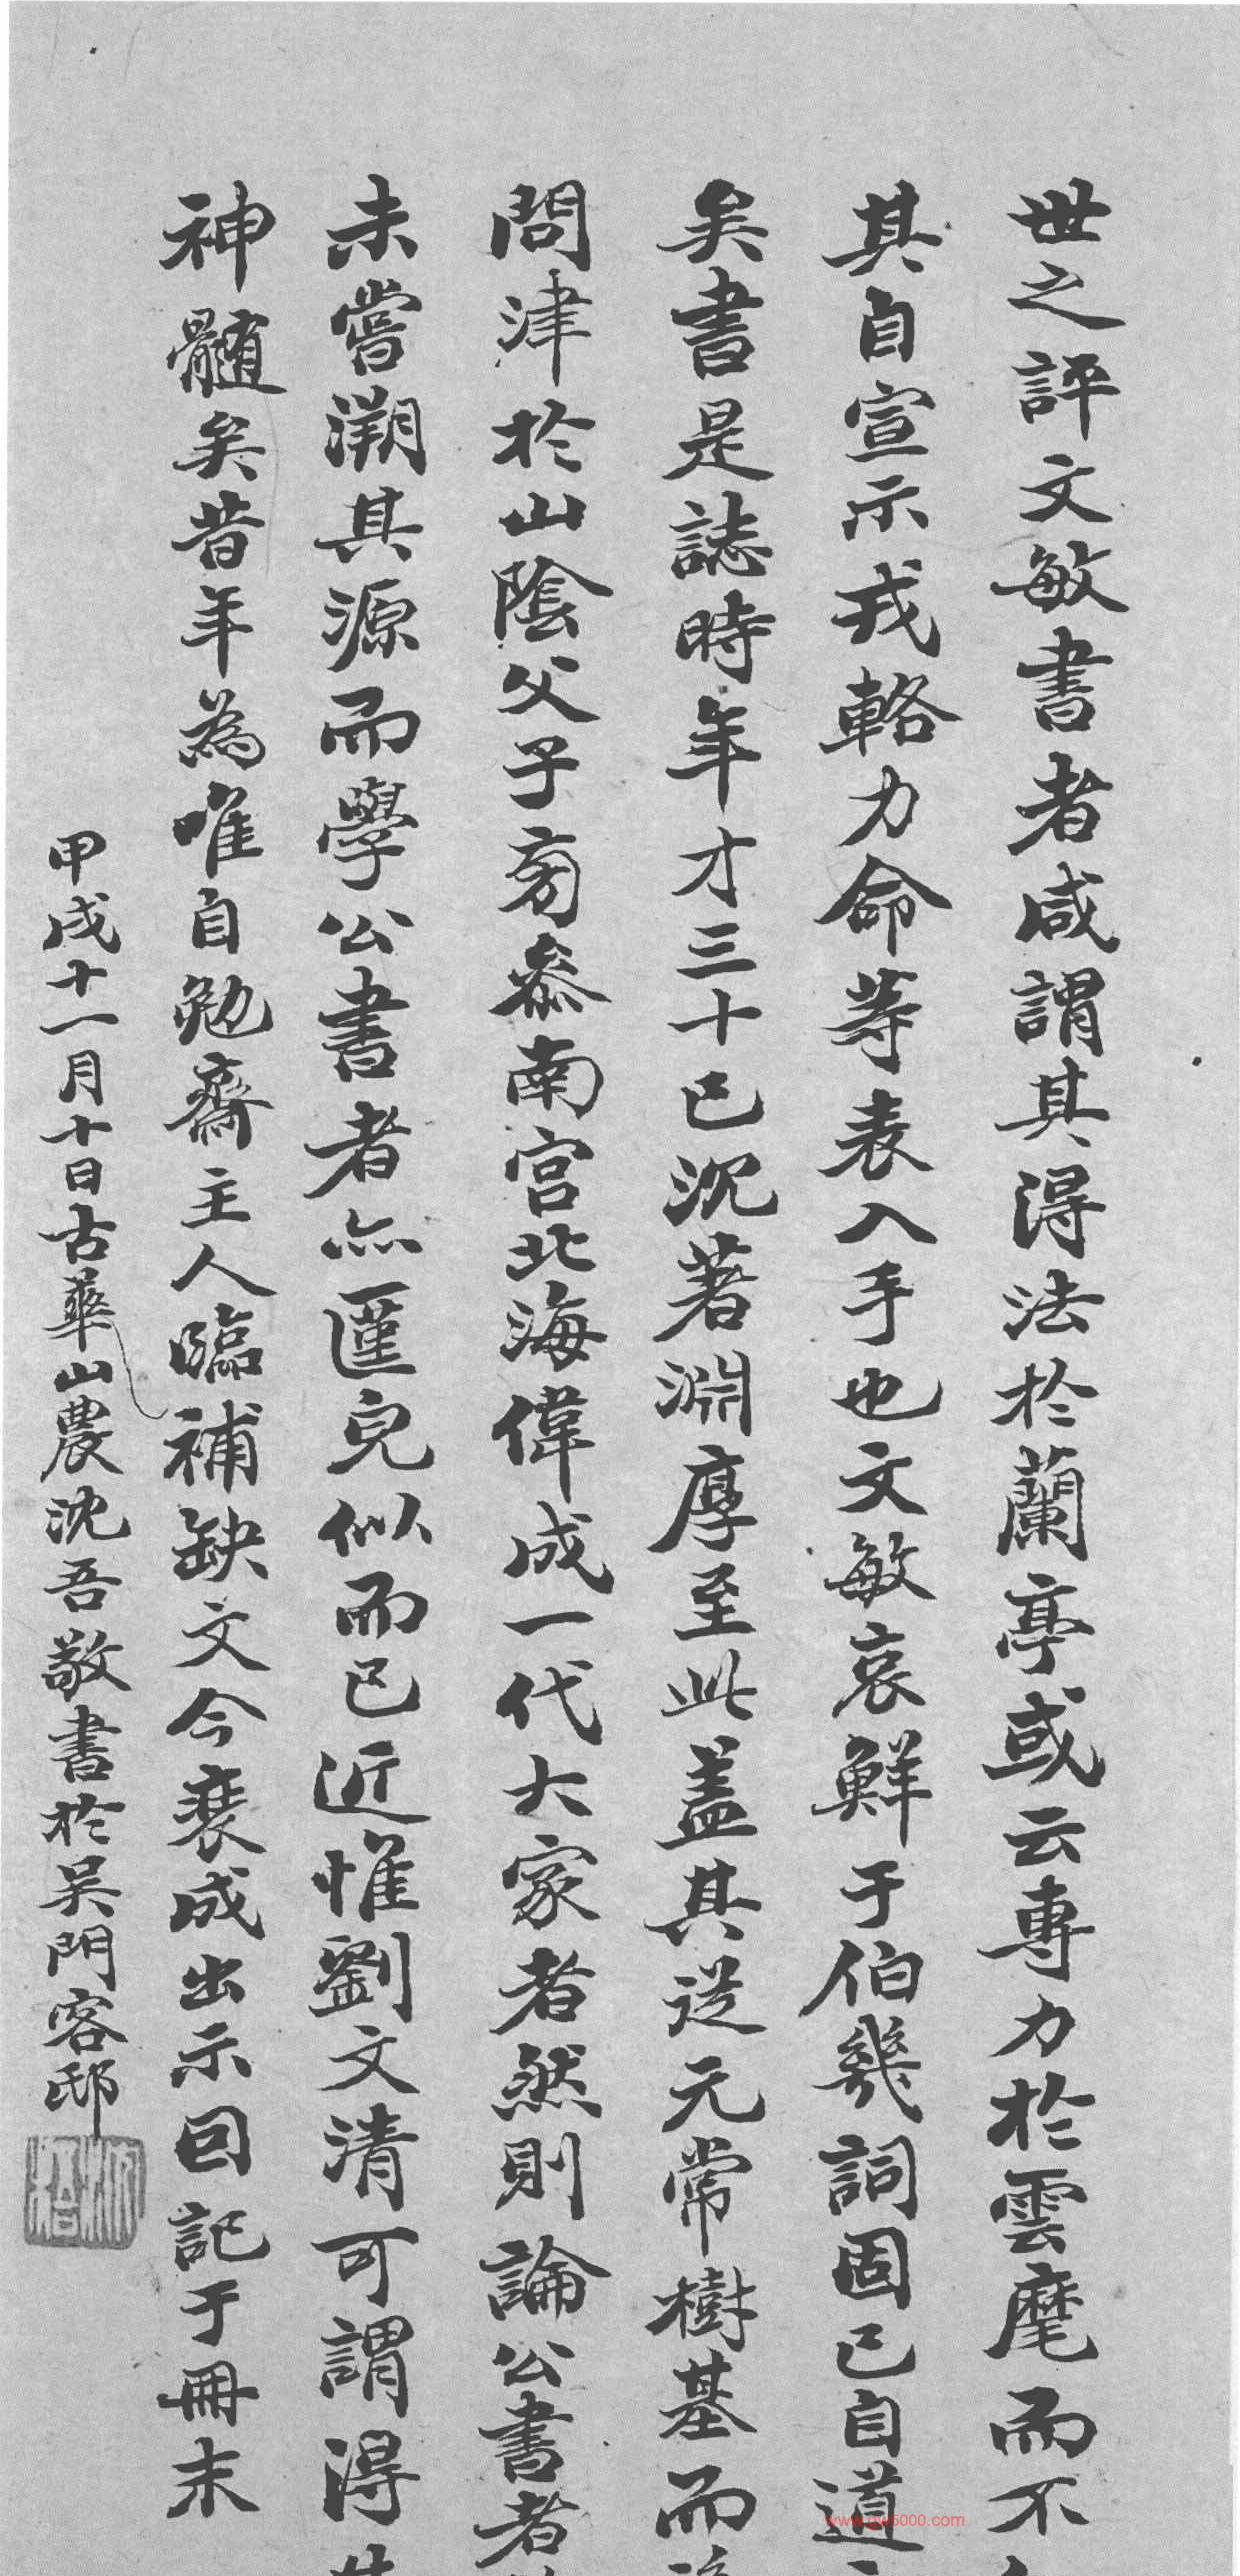 世之評文敏書者咸謂其淂法於蘭亭或云專力於雲麾而不
其自宣示戎輅力命等表入手也文敏哀鮮于伯幾詞固已自道
矣書是誌時年才三十已沉著淵厚至此盖其從元常樹基而
問津於山陰父子旁叅南宮北海偉成一代大家者然則論公書者
未嘗溯其源而學公書者亦僅皃似而已近惟劉文清可謂淂其
神髓矣昔年為唯自勉齋主人臨補缺文今裝成出示回記于冊末
甲戌十一月十日古華山農沈吾敬書於吴門客邸
www.gw5000.com